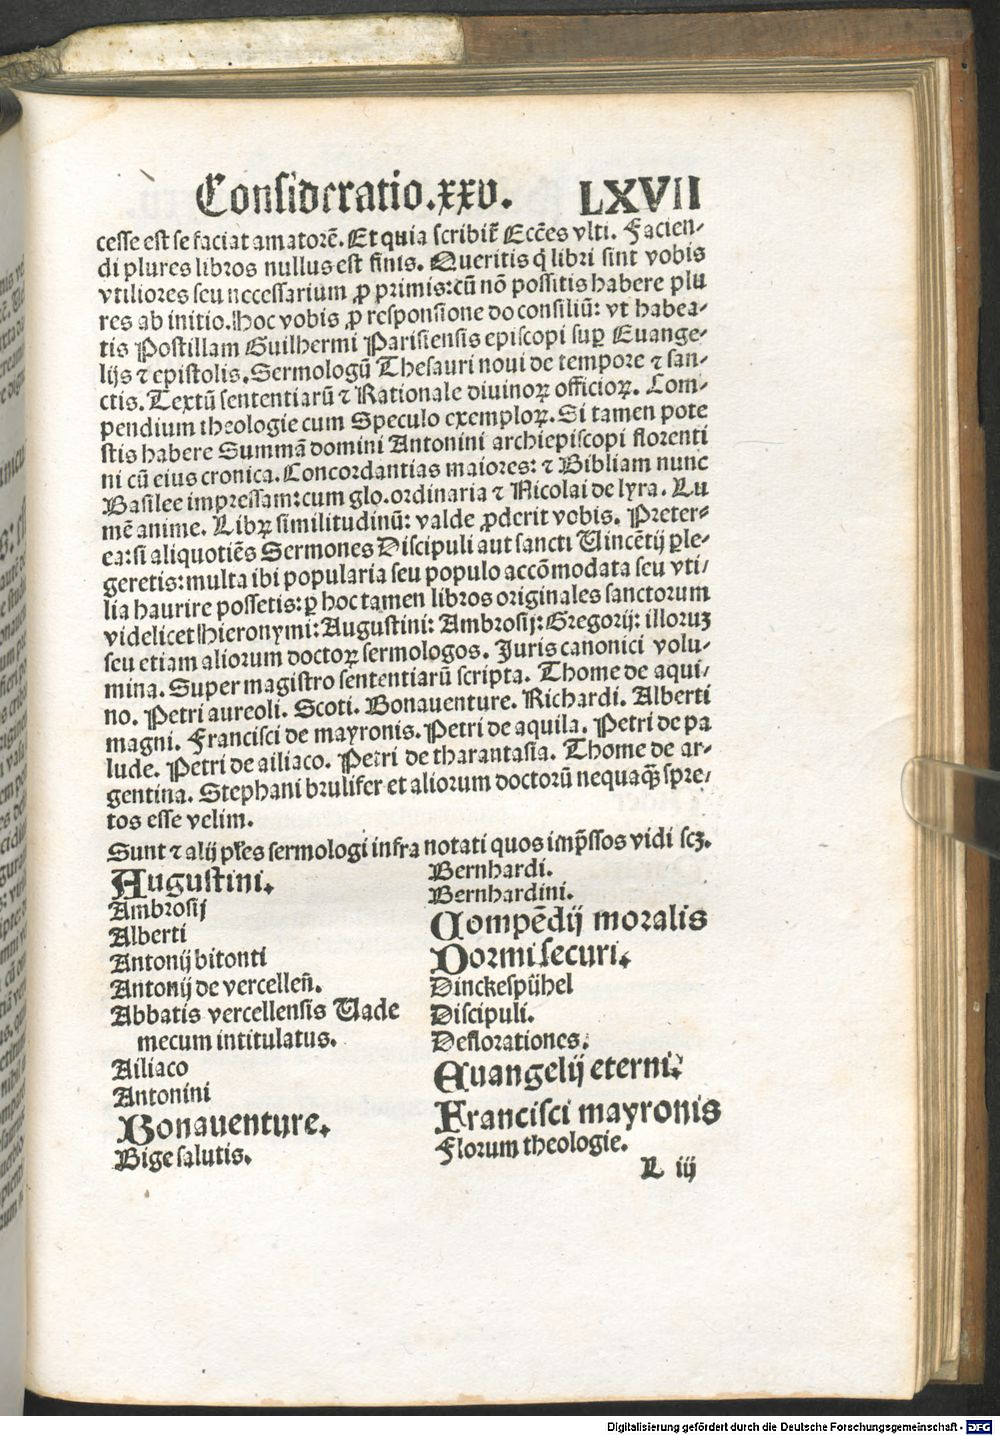 Consideratio.xxv. LXVII
cesse est se faciat amatorē. Et quia scribit̄ Ecc̄es vlti. Facien-
di plures libros nullus est finis. Queritis q̇ libri sint vobis
vtiliores seu necessarium ꝓ primis: cū nō possitis habere plu
res ab initio. Hoc vobis ꝓ responsione do consiliū: vt habea-
tis Postillam Guilhermi Parisiensis episcopi suꝑ Euange-
lijs ⁊ epistolis. Sermologū Thesauri noui de tempore ⁊ san-
ctis. Textū sententiarū ⁊ Rationale diuinoꝝ officioꝝ. Com-
pendium theologie cum Speculo exemploꝝ. Si tamen pote
stis habere Summā domini Antonini archiepiscopi florenti
ni cū eius cronica. Concordantias maiores: ⁊ Bibliam nunc
Basilee impressam: cum glo. ordinaria ⁊ Nicolai de lyra. Lu
mē anime. Libꝝ similitudinū: valde ꝓderit vobis. Preter-
ea: si aliquotiēs Sermones Discipuli aut sancti Vincētij ꝑle-
geretis: multa ibi popularia seu populo accōmodata seu vti-
lia haurire possetis: ꝑ hoc tamen libros originales sanctorum
videlicet Hieronymi: Augustini: Ambrosij: Gregorij: illoruꝫ
seu etiam aliorum doctoꝝ sermologos. Juris canonici volu-
mina. Super magistro sententiarū scripta. Thome de aqui-
no. Petri aureoli. Scoti. Bonauenture. Richardi. Alberti
magni. Francisci de mayronis. Petri de aquila. Petri de pa
lude. Petri de ailiaco. Petri de tharantasia. Thome de ar-
gentina. Stephani brulifer et aliorum doctorū nequaq̄ȝ spre-
tos esse velim.
Sunt ⁊ alij pl̄es sermologi infra notati quos imp̄ssos vidi scꝫ.
Augustini.
Ambrosij
Alberti
Antonij bitonti
Antonij de vercelleñ.
Abbatis vercellensis Vade
mecum intitulatus.
Ailiaco
Antonini
Bonauenture.
Bige salutis.
Bernhardi.
Bernhardini.
Compēdij moralis
Dormi secur​i.
Dinckespühel
Discipuli.
Deflorationes.
Euangelij eterni.
Francisci mayronis
Florum theologie.
L iij
Digitalisierung gefördert durch die Deutsche Forschungsgemeinschaft - DFG